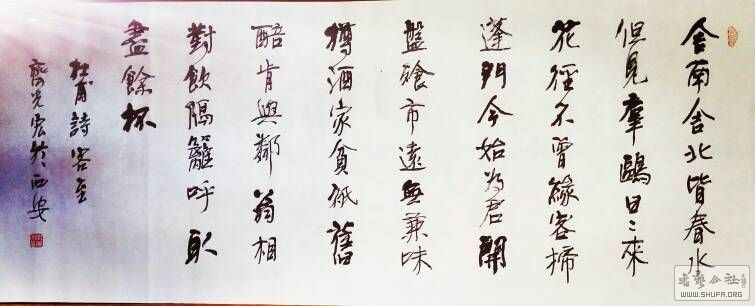 舍南舍北皆春水
但見羣鷗日〻來
花徑不曾緣客掃
蓬門今始為君開
盤飧市遠無兼味
樽酒家貧祇舊
醅肯與鄰翁相
對飲隔籬呼取
盡餘杯
杜甫詩客至
齊光宏於西安
書藝公社
WWW.SHUFA.ORG